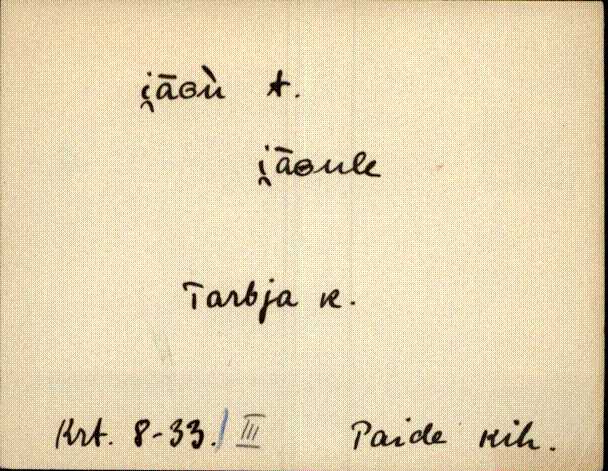 i̯āɢù t.
i̯āɢule
Tarbja k.
Krt. 8-33./ III Paide kih.